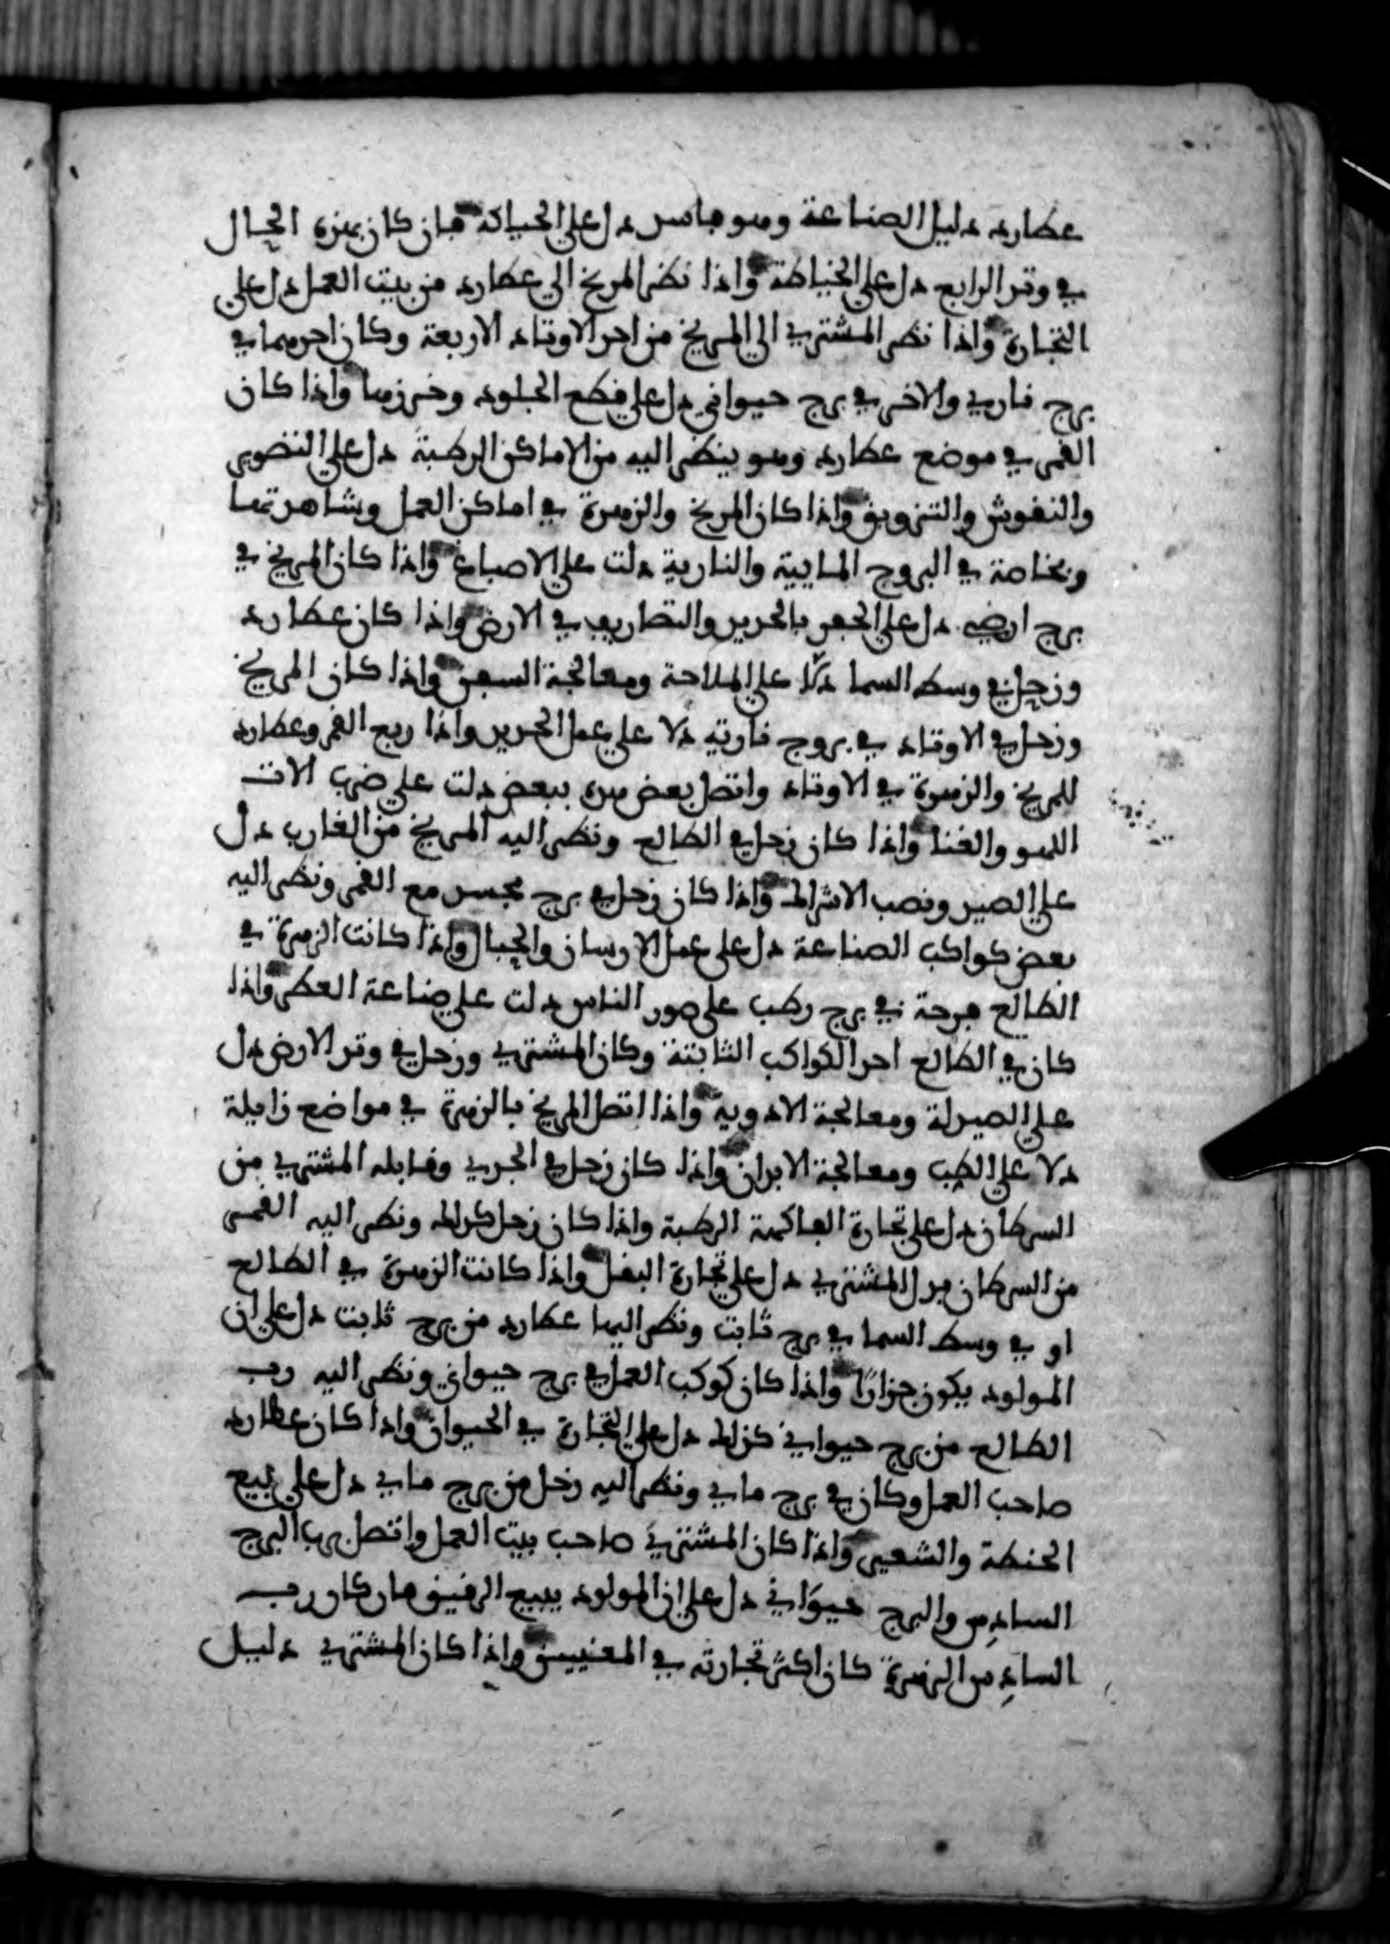 عطارد دليل الصناعة وهو فاسد دل على الحياكة فإن كان بهذه الحال
في وتد الرابع دل على الخياطة واذا نظر المريخ الى عطارد من بيت العمل دل على
التجارة واذا نظر المشتري الى المريخ من احد الاوتاد الاربعة وكان احدهما في
برج ناري والاخر في برج حيواني دل على قطع الجلود وخرزها واذا كان
القمر في موضع عطارد وهو ينظر اليه من الاماكن الرطبة دل على التصوير
والنقوش والتزويق واذا كان المريخ والزهرة في اماكن العمل وشاهدتهما
وبخاصة في البروج المايية والنارية دلت على الاصباغ واذا كان المريخ في
برج ارضي دل على الحفر بالحديد والتصاريف في الارض واذا كان عطارد
وزحل في وسط السما دلا على الملاحة ومعالجة السفن واذا كان المريخ
وزحل في الاوتاد في بروج نارية دلا على عمل الحديد واذا ربع القمر وعطارد
للمريخ والزهرة في الاوتاد واتصل بعض هذه ببعض دلت على ضرب الات
اللهو والغنا واذا كان زحل في الطالع ونظر اليه المريخ من الغارب دل
على الصيد ونصب الاشراك واذا كان زحل في برج مجسد مع القمر ونظر اليه
بعض كواكب الصناعة دل على عمل الارسان والحبال واذا كانت الزهرة في
الطالع فرحة في برج رطب على صور الناس دلت على صناعة العطر واذا
كان في الطالع احد الكواكب الثابتة وكان المشتري وزحل في وتد الارض دل
على الصيدلة ومعالجة الادوية واذا اتصل المريخ بالزهرة في مواضع زايلة
دلا على الطب ومعالجة الابدان واذا كان زحل في الجدي وقابله المشتري من
السرطان دل على تجارة الفاكهة الرطبة واذا كان زحل كذلك ونظر اليه القمر
من السرطان بدل المشتري دل على تجارة البقل واذا كانت الزهرة في الطالع
او في وسط السما في برج ثابت ونظر اليها عطارد من برج ثابت دل على ان
المولود يكون جزارًا واذا كان كوكب العمل في برج حيواني ونظر اليه رب
الطالع من برج حيواني كذلك دل على التجارة في الحيوان واذا كان عطارد
صاحب العمل وكان في برج مايي ونظر اليه زحل من برج مايي دل على بيع
الحنطة والشعير واذا كان المشتري صاحب بيت العمل واتصل برب البرج
السادس والبرج حيواني دل على ان المولود يبيع الرقيق فان كان رب
السادس الزهرة كان اكثر تجارته في المغنيين واذا كان المشتري دليل